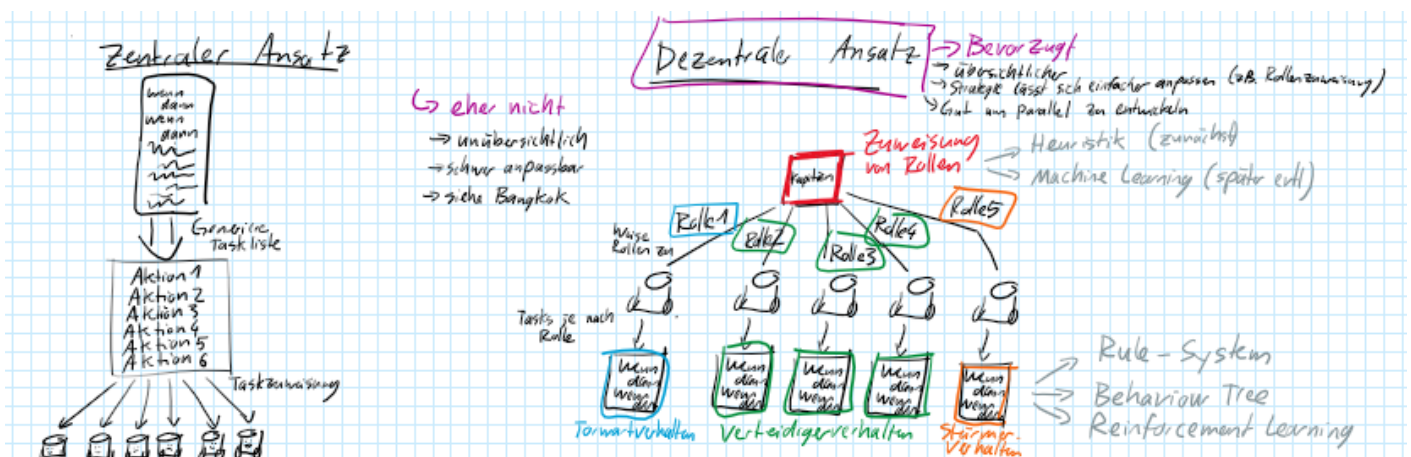 Zentraler Ansatz
wenn
dann
wenn
dann
Generiere
Taskliste
Aktion 1
Aktion 2
Aktion 3
Aktion 4
Aktion 5
Aktion 6
Taskzuweisung
↳ eher nicht
→ unübersichtlich
→ schwer anpassbar
→ siehe Bangkok
Dezentraler Ansatz
→ Bevorzugt
→ übersichtlicher
→ Strategie lässt sich einfacher anpassen (zB. Rollenzuweisung)
→ Gut um parallel zu entwickeln
Kapitän
Zuweisung
von Rollen
→ Heuristik (zunächst)
→ Machine Learning (später evtl)
Weise
Rollen zu
Rolle1
Rolle2
Rolle3
Rolle4
Rolle5
Tasks je nach
Rolle
wenn
dann
wenn
dann
wenn
dann
wenn
dann
wenn
dann
wenn
dann
wenn
dann
wenn
dann
wenn
dann
wenn
dann
Torwartverhalten
Verteidigerverhalten
Stürmer-
verhalten
→ Rule-System
→ Behaviour Tree
→ Reinforcement Learning